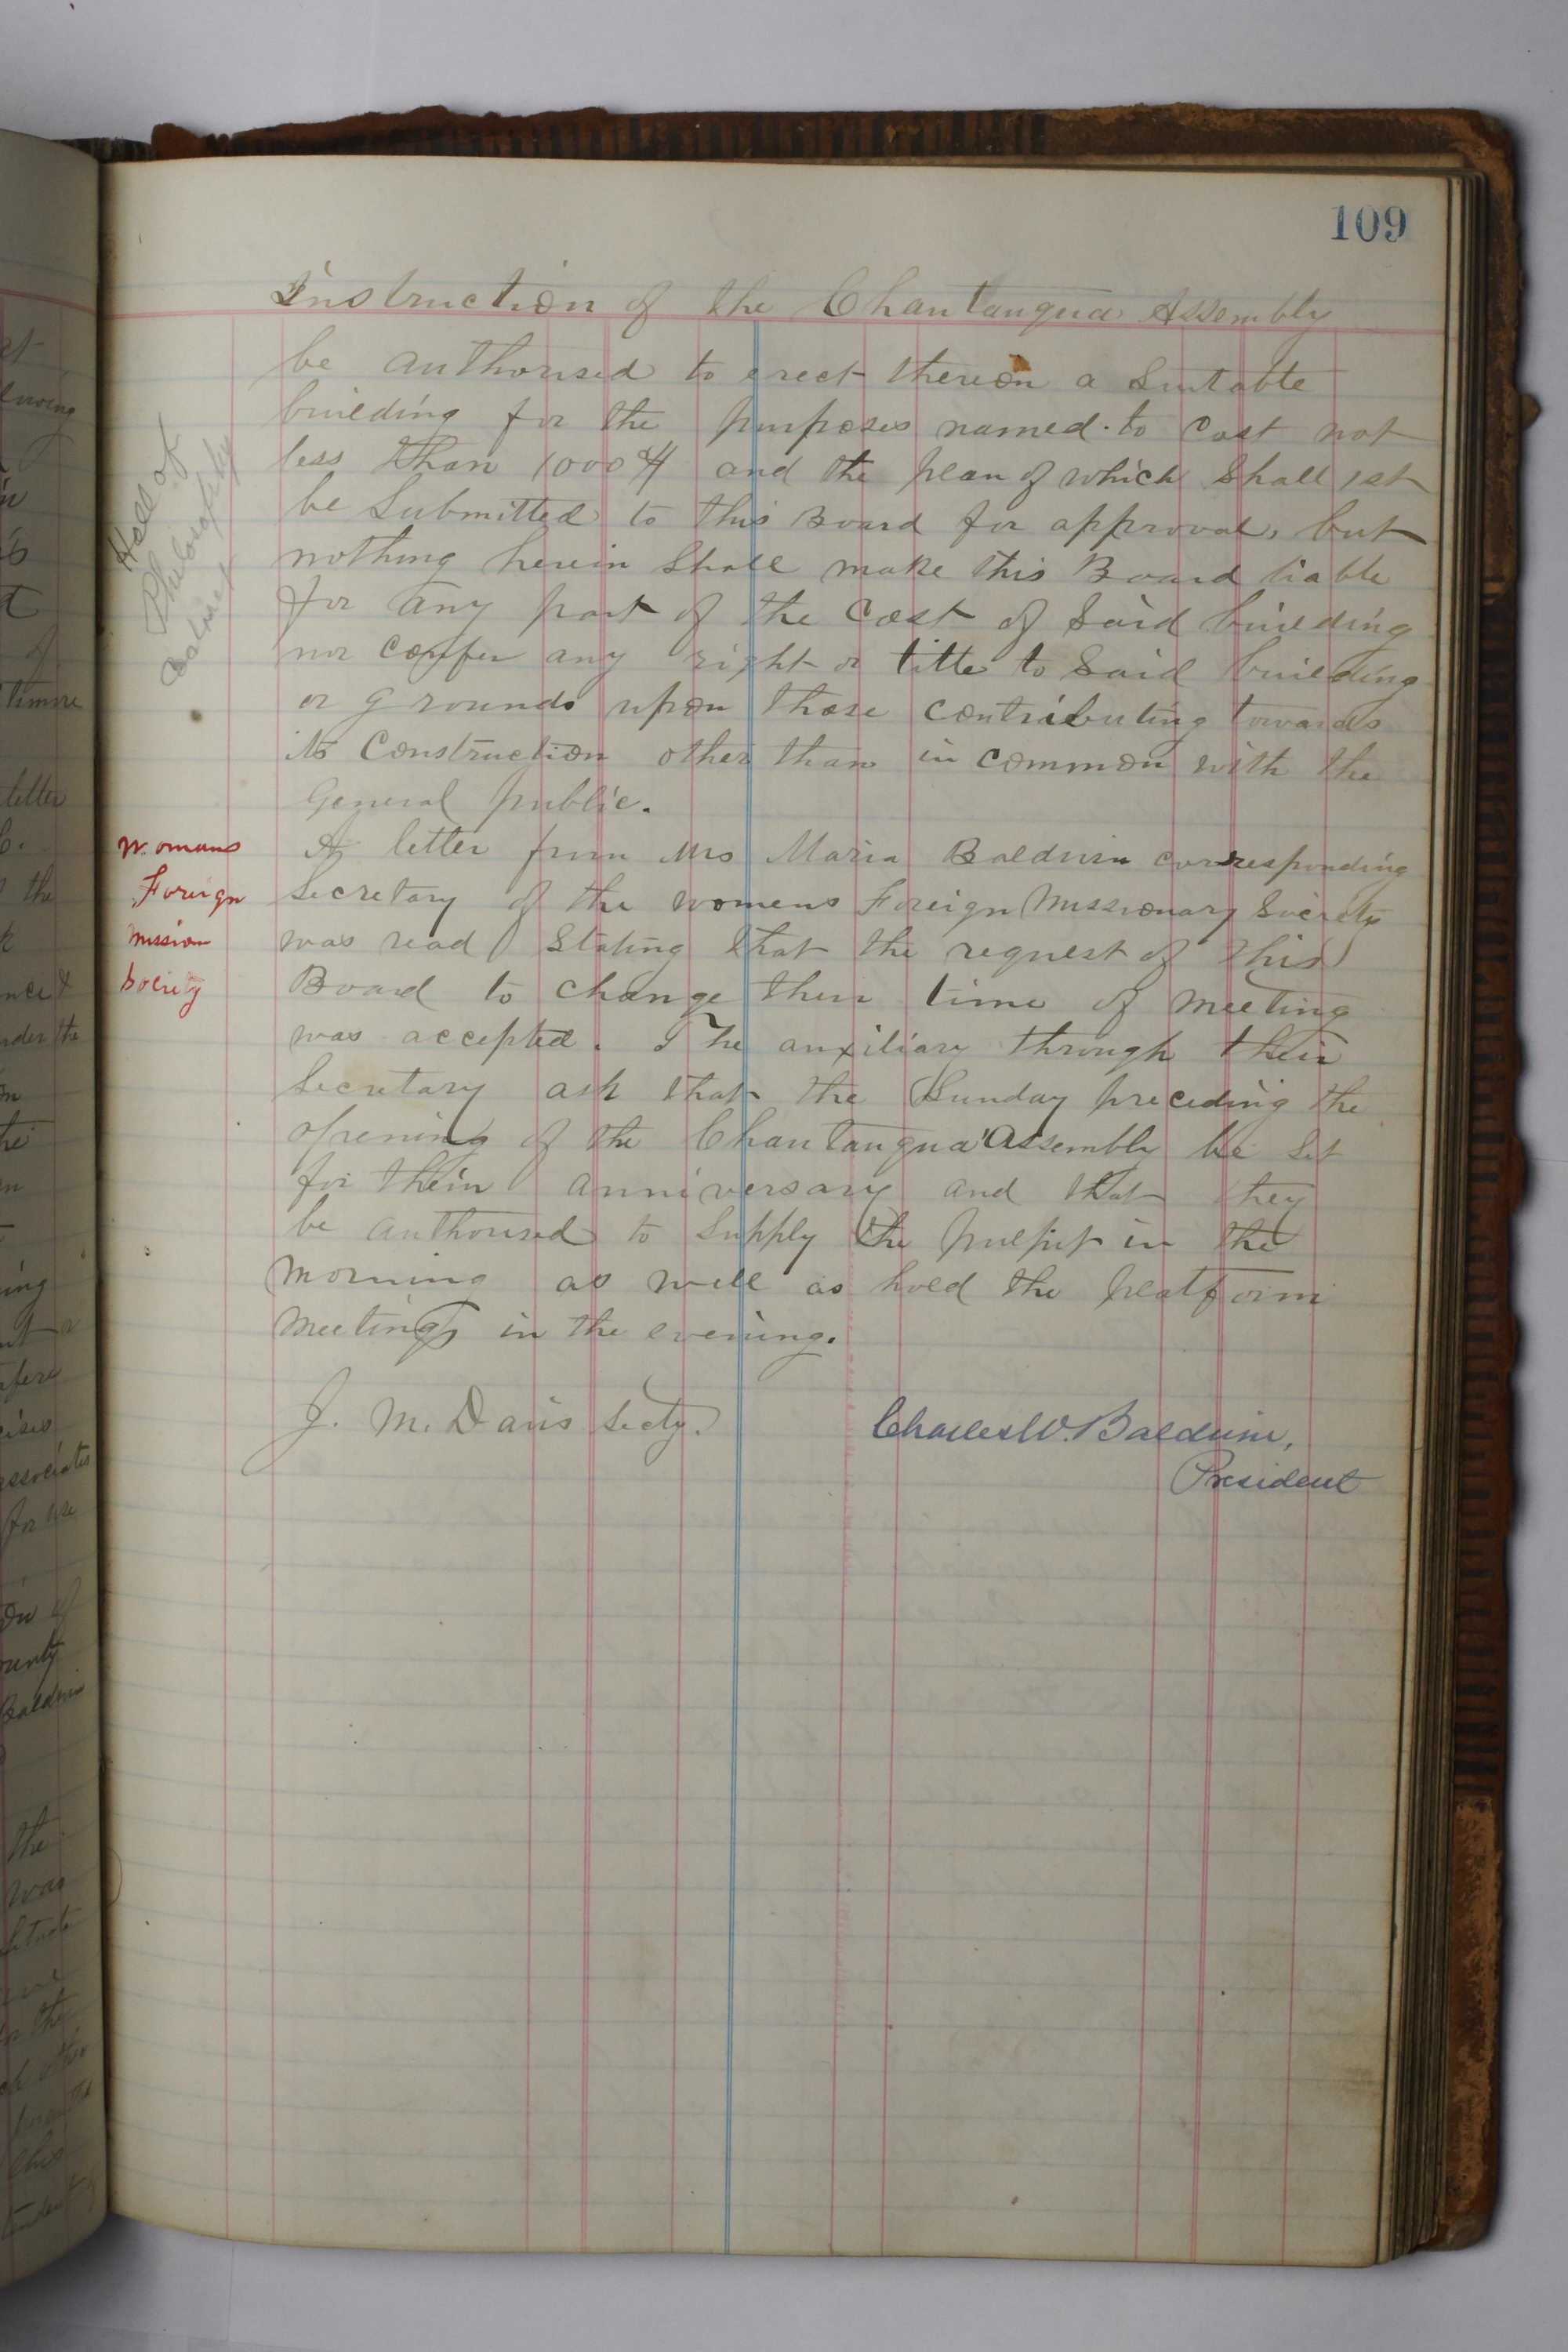 109
Instruction of the Chautauqua Assembly
be authorised to erect thereon a suitable
building for the purposes named. to cost not
less than 1000 and the plan of which shall 1st
be Submitted to this Board for approval, but
nothing herein shall make this Board liable
for any part of the cost of said building
nor confer any right or title to said building
or grounds upon those contributing towards
its construction other than in common with the
General public.
Hall of
Philosophy
A letter from Mrs Maria Baldwin corresponding
Secretary of the womens Foreign Missionary Society
was read stating that the request of this
Board to change their time of meeting
was accepted. The auxiliary through their
Secretary ask that the Sunday preceding the
opening of the Chautauqua Assembly be set
for their anniversary and that they
be authorised to supply the pulpit in the
morning as well as hold the platform
meetings in the evening.
Womans
Foreign
Mission
Society
J. M. Davis Secty.
Charles W. Baldwin,
President
letter
the
Baldwin
the
was